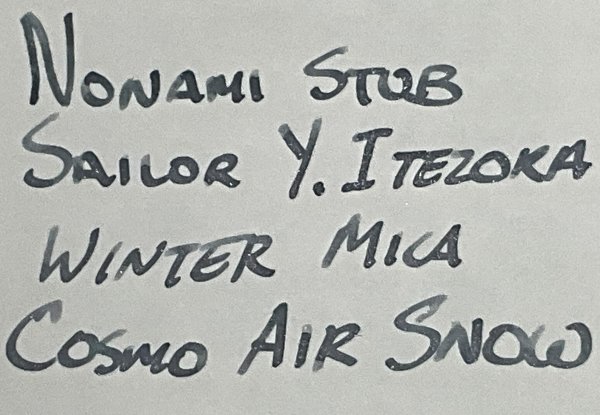 Nonami Stub
Sailor Y. Itezora
Winter Mica
Cosmo Air Snow